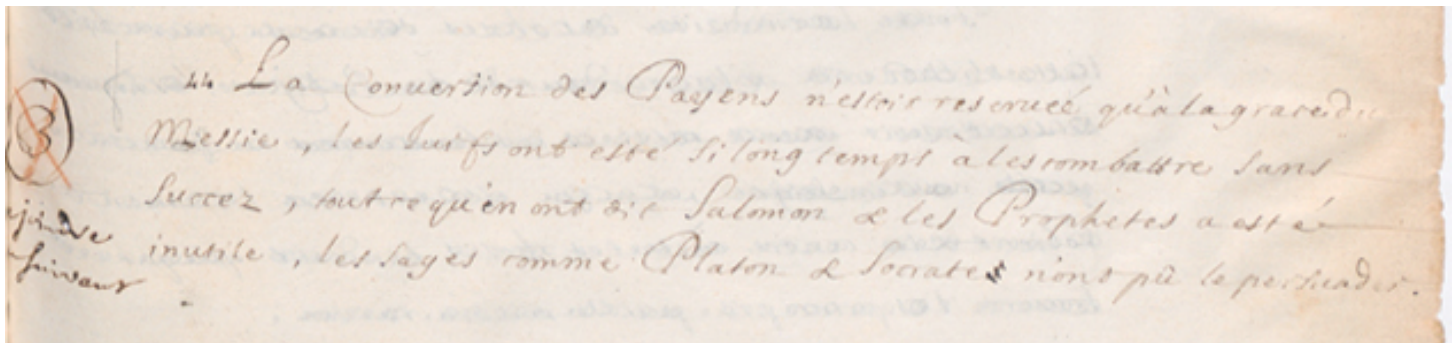 44 La Conuersion des Payens n'estoit reserueé qu'à la grace du
Messie, les Juifs ont esté si long temps à les combattre sans
Succez, tout ce qu'en ont dit Salomon & les Prophetes a esté
inutile, les sages comme Platon & Socrate n'ont pû le persuader.
B
joindre
suivant